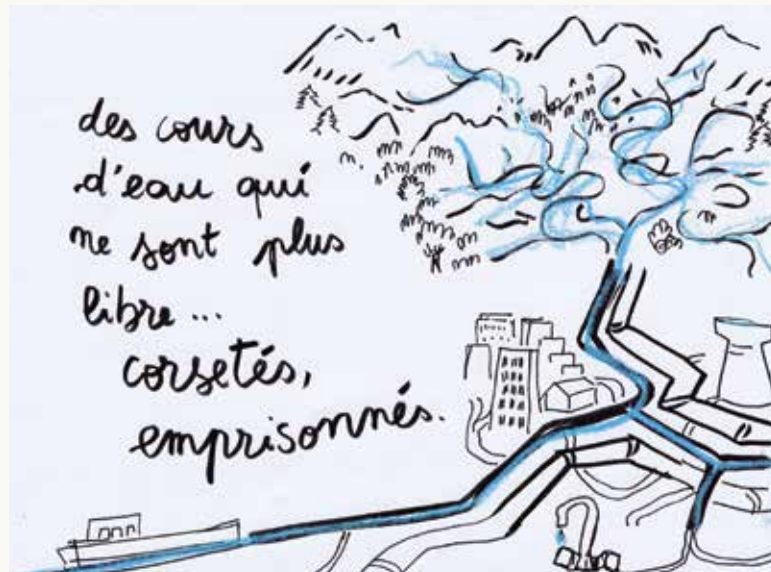 des cours
d'eau qui
ne sont plus
libre...
corsetés,
emprisonnés.